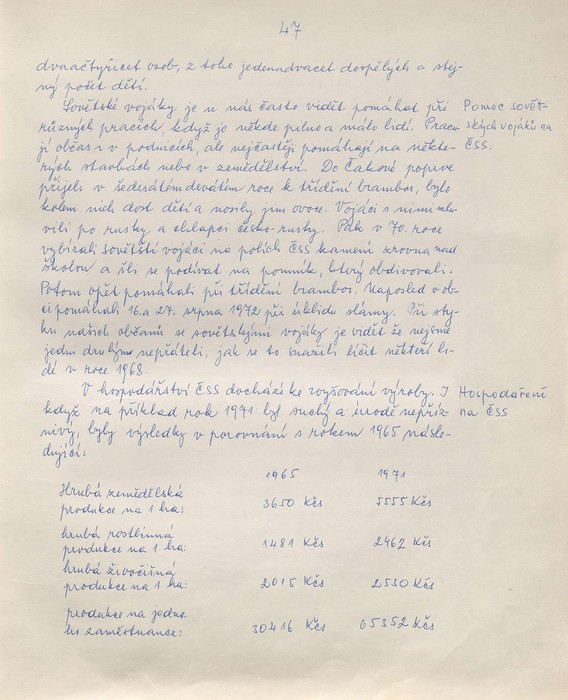 47
dvaačtyřicet osob, z toho jedenadvacet dospělých a stej-
ný počet dětí.
Sovětské vojáky je u nás často vidět pomáhat při
různých pracích, když je někde pilno a málo lidí. Pracu-
jí občas i v podnicích, ale nejčastěji pomáhají na někte-
rých stavbách nebo v zemědělství. Do Čakové poprve
přijeli v šedesátém devátém roce k třídění brambor, bylo
kolem nich dost dětí a nosily jim ovoce. Vojáci s nimi mlu-
vili po rusky a chlapci česko-rusky. Pak v 70. roce
vybírali sovětští vojáci na polích ČSS kamení zrovna nad
školou a šli se podívat na pomník, který obdivovali.
Potom opět pomáhali při třídění brambor. Naposled v ob-
ci pomáhali 16. a 27. srpna 1972 při úklidu slámy. Při sty-
ku našich občanů se sovětskými vojáky je vidět že nejsme
jedni druhým nepřáteli, jak se to snažili líčit někteří li-
dé v roce 1968.
Pomoc sovět-
ských vojáků na
ČSS.
V hospodářství ČSS dochází ke zvyšování výroby. I
když na příklad rok 1971 byl suchý a úrodě nepříz-
nivý, byly výsledky v porovnání s rokem 1965 násle-
dující:
Hospodaření
na ČSS
1965 1971
Hrubá zemědělská
produkce na 1 ha: 3650 Kčs 5555 Kčs
hrubá rostlinná
produkce na 1 ha: 1481 Kčs 2462 Kčs
hrubá živočišná
produkce na 1 ha: 2015 Kčs 2530 Kčs
produkce na jedno
ho zaměstnance: 30416 Kčs 65352 Kčs